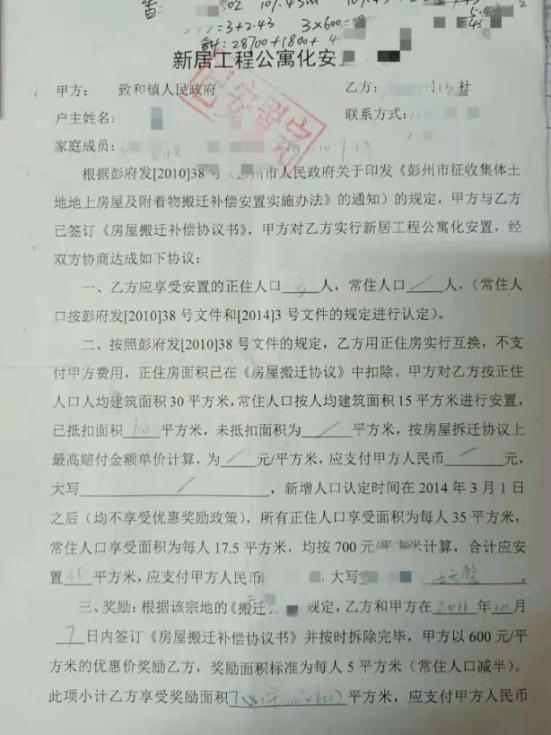 3+2.43 3×600=
合计: 28700+1800+4
新居工程公寓化安
已安置
甲方： 致和镇人民政府 乙方： 社
户主姓名： 联系方式：
家庭成员：
根据彭府发[2010]38号 市人民政府关于印发《彭州市征收集体土
地地上房屋及附着物搬迁补偿安置实施办法》的通知）的规定，甲方与乙方
已签订《房屋搬迁补偿协议书》，甲方对乙方实行新居工程公寓化安置，经
双方协商达成如下协议：
一、乙方应享受安置的正住人口 3 人，常住人口 / 人，（常住人
口按彭府发[2010]38号文件和[2014]3号文件的规定进行认定）。
二、按照彭府发[2010]38号文件的规定，乙方用正住房实行互换，不支
付甲方费用，正住房面积已在《房屋搬迁协议》中扣除。甲方对乙方按正住
人口人均建筑面积30平方米，常住人口按人均建筑面积15平方米进行安置，
已抵扣面积 平方米，未抵扣面积为 / 平方米，按房屋拆迁协议上
最高赔付金额单价计算，为 / 元/平方米，应支付甲方人民币 / 元，
大写 / ，新增人口认定时间在2014年3月1日
之后（均不享受优惠奖励政策），所有正住人口享受面积为每人35平方米，
常住人口享受面积为每人17.5平方米，均按700元/平方米计算，合计应安
置 平方米，应支付甲方人民币 ，大写 。
三、奖励：根据该宗地的《搬迁 规定，乙方和甲方在 2011 年 10 月
7 日内签订《房屋搬迁补偿协议书》并按时拆除完毕，甲方以600元/平
方米的优惠价奖励乙方，奖励面积标准为每人5平方米（常住人口减半）。
此项小计乙方享受奖励面积 平方米，应支付甲方人民币